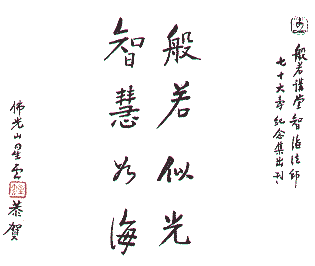 般若講堂智海法師
七十大壽紀念集出刊
般若似光
智慧如海
佛光山星雲
恭賀